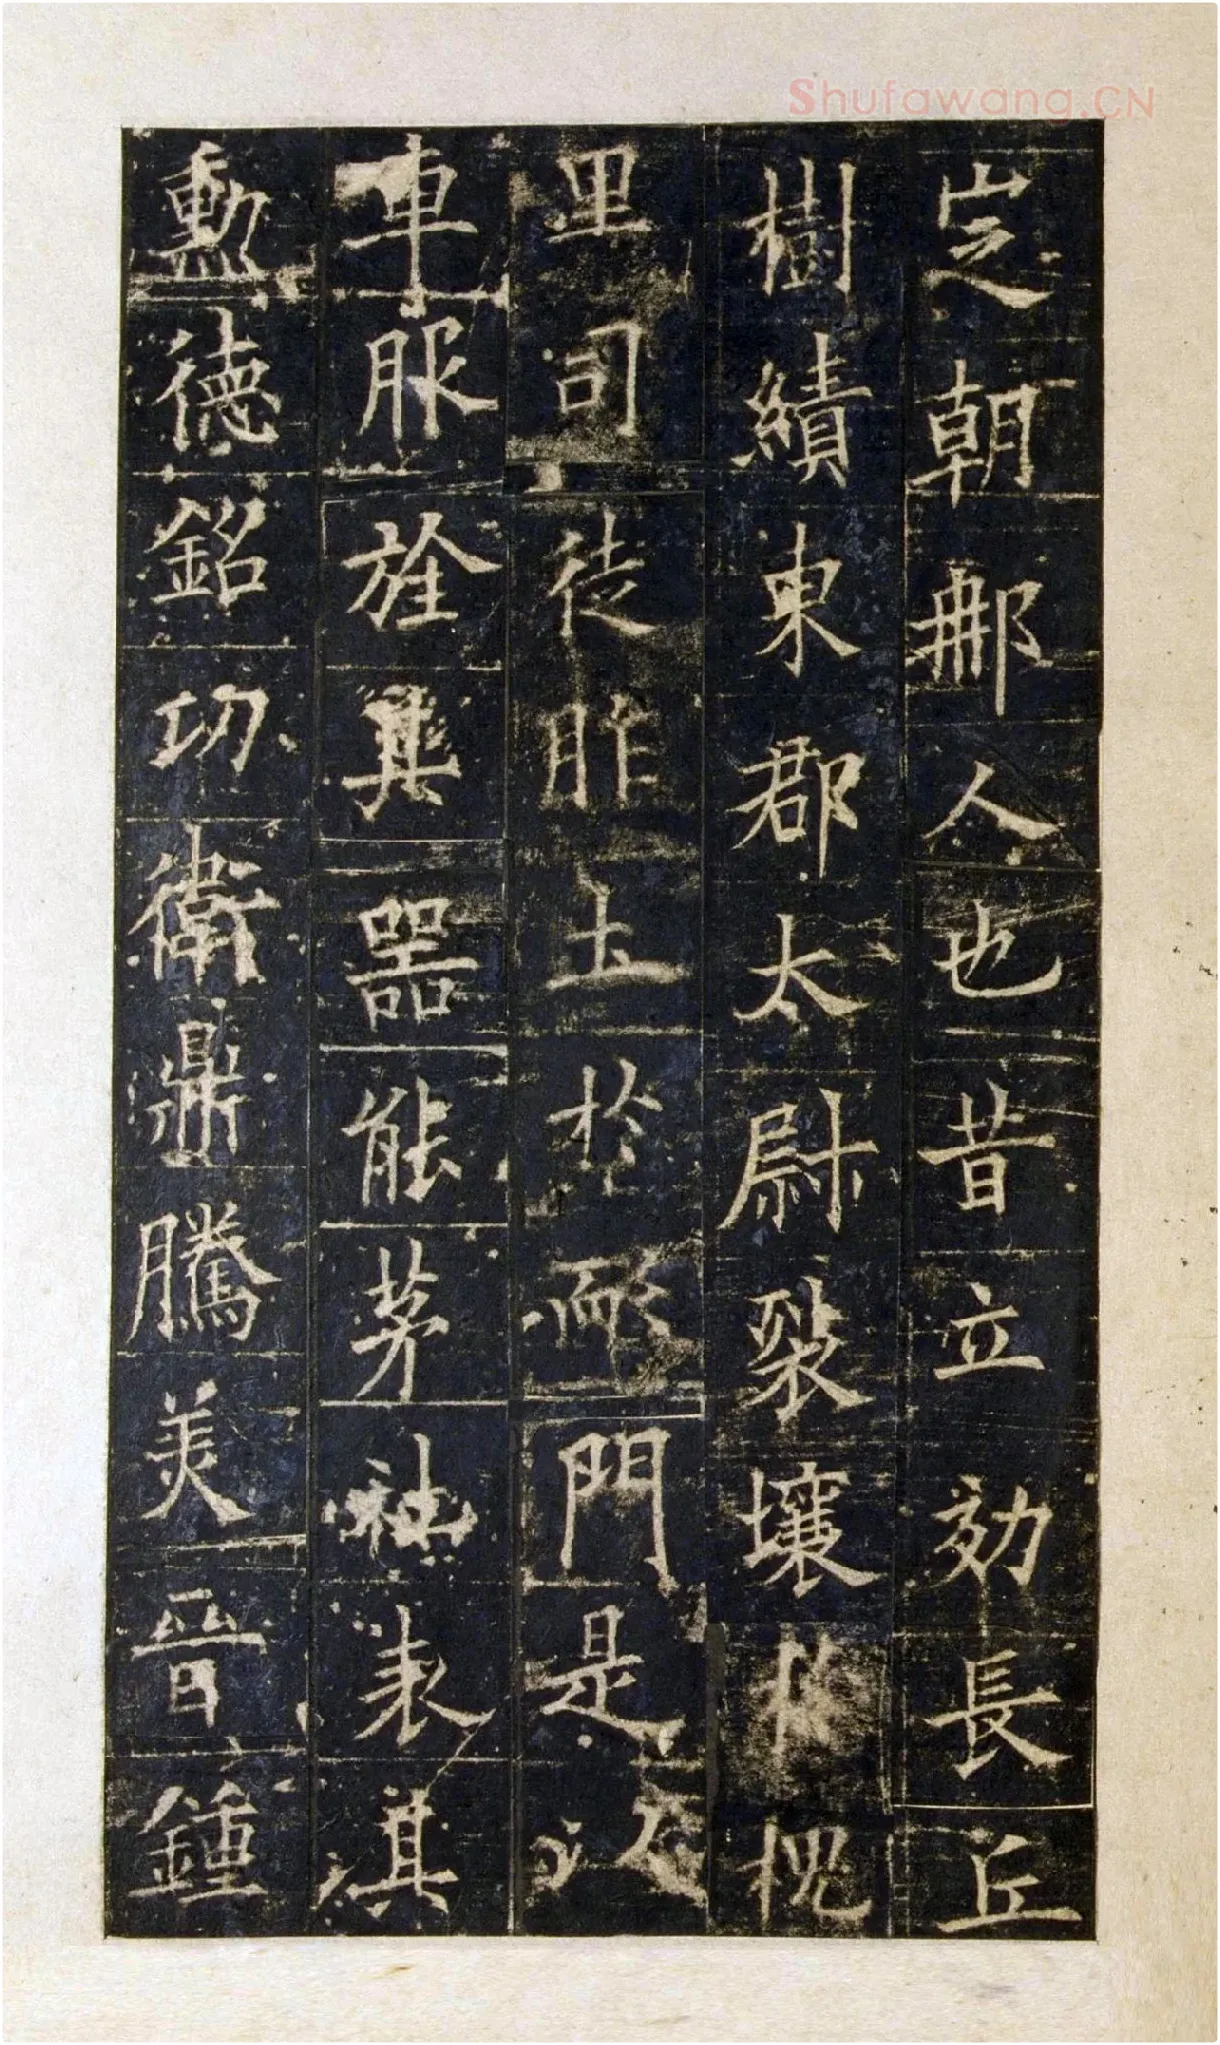 Shufawang.CN
定朝那人也昔立効長丘
樹績東郡太尉裂壤於槐
里司徒胙土於耏門是以
車服旌其器能茅社表其
勳德銘功衛鼎騰美晉鍾